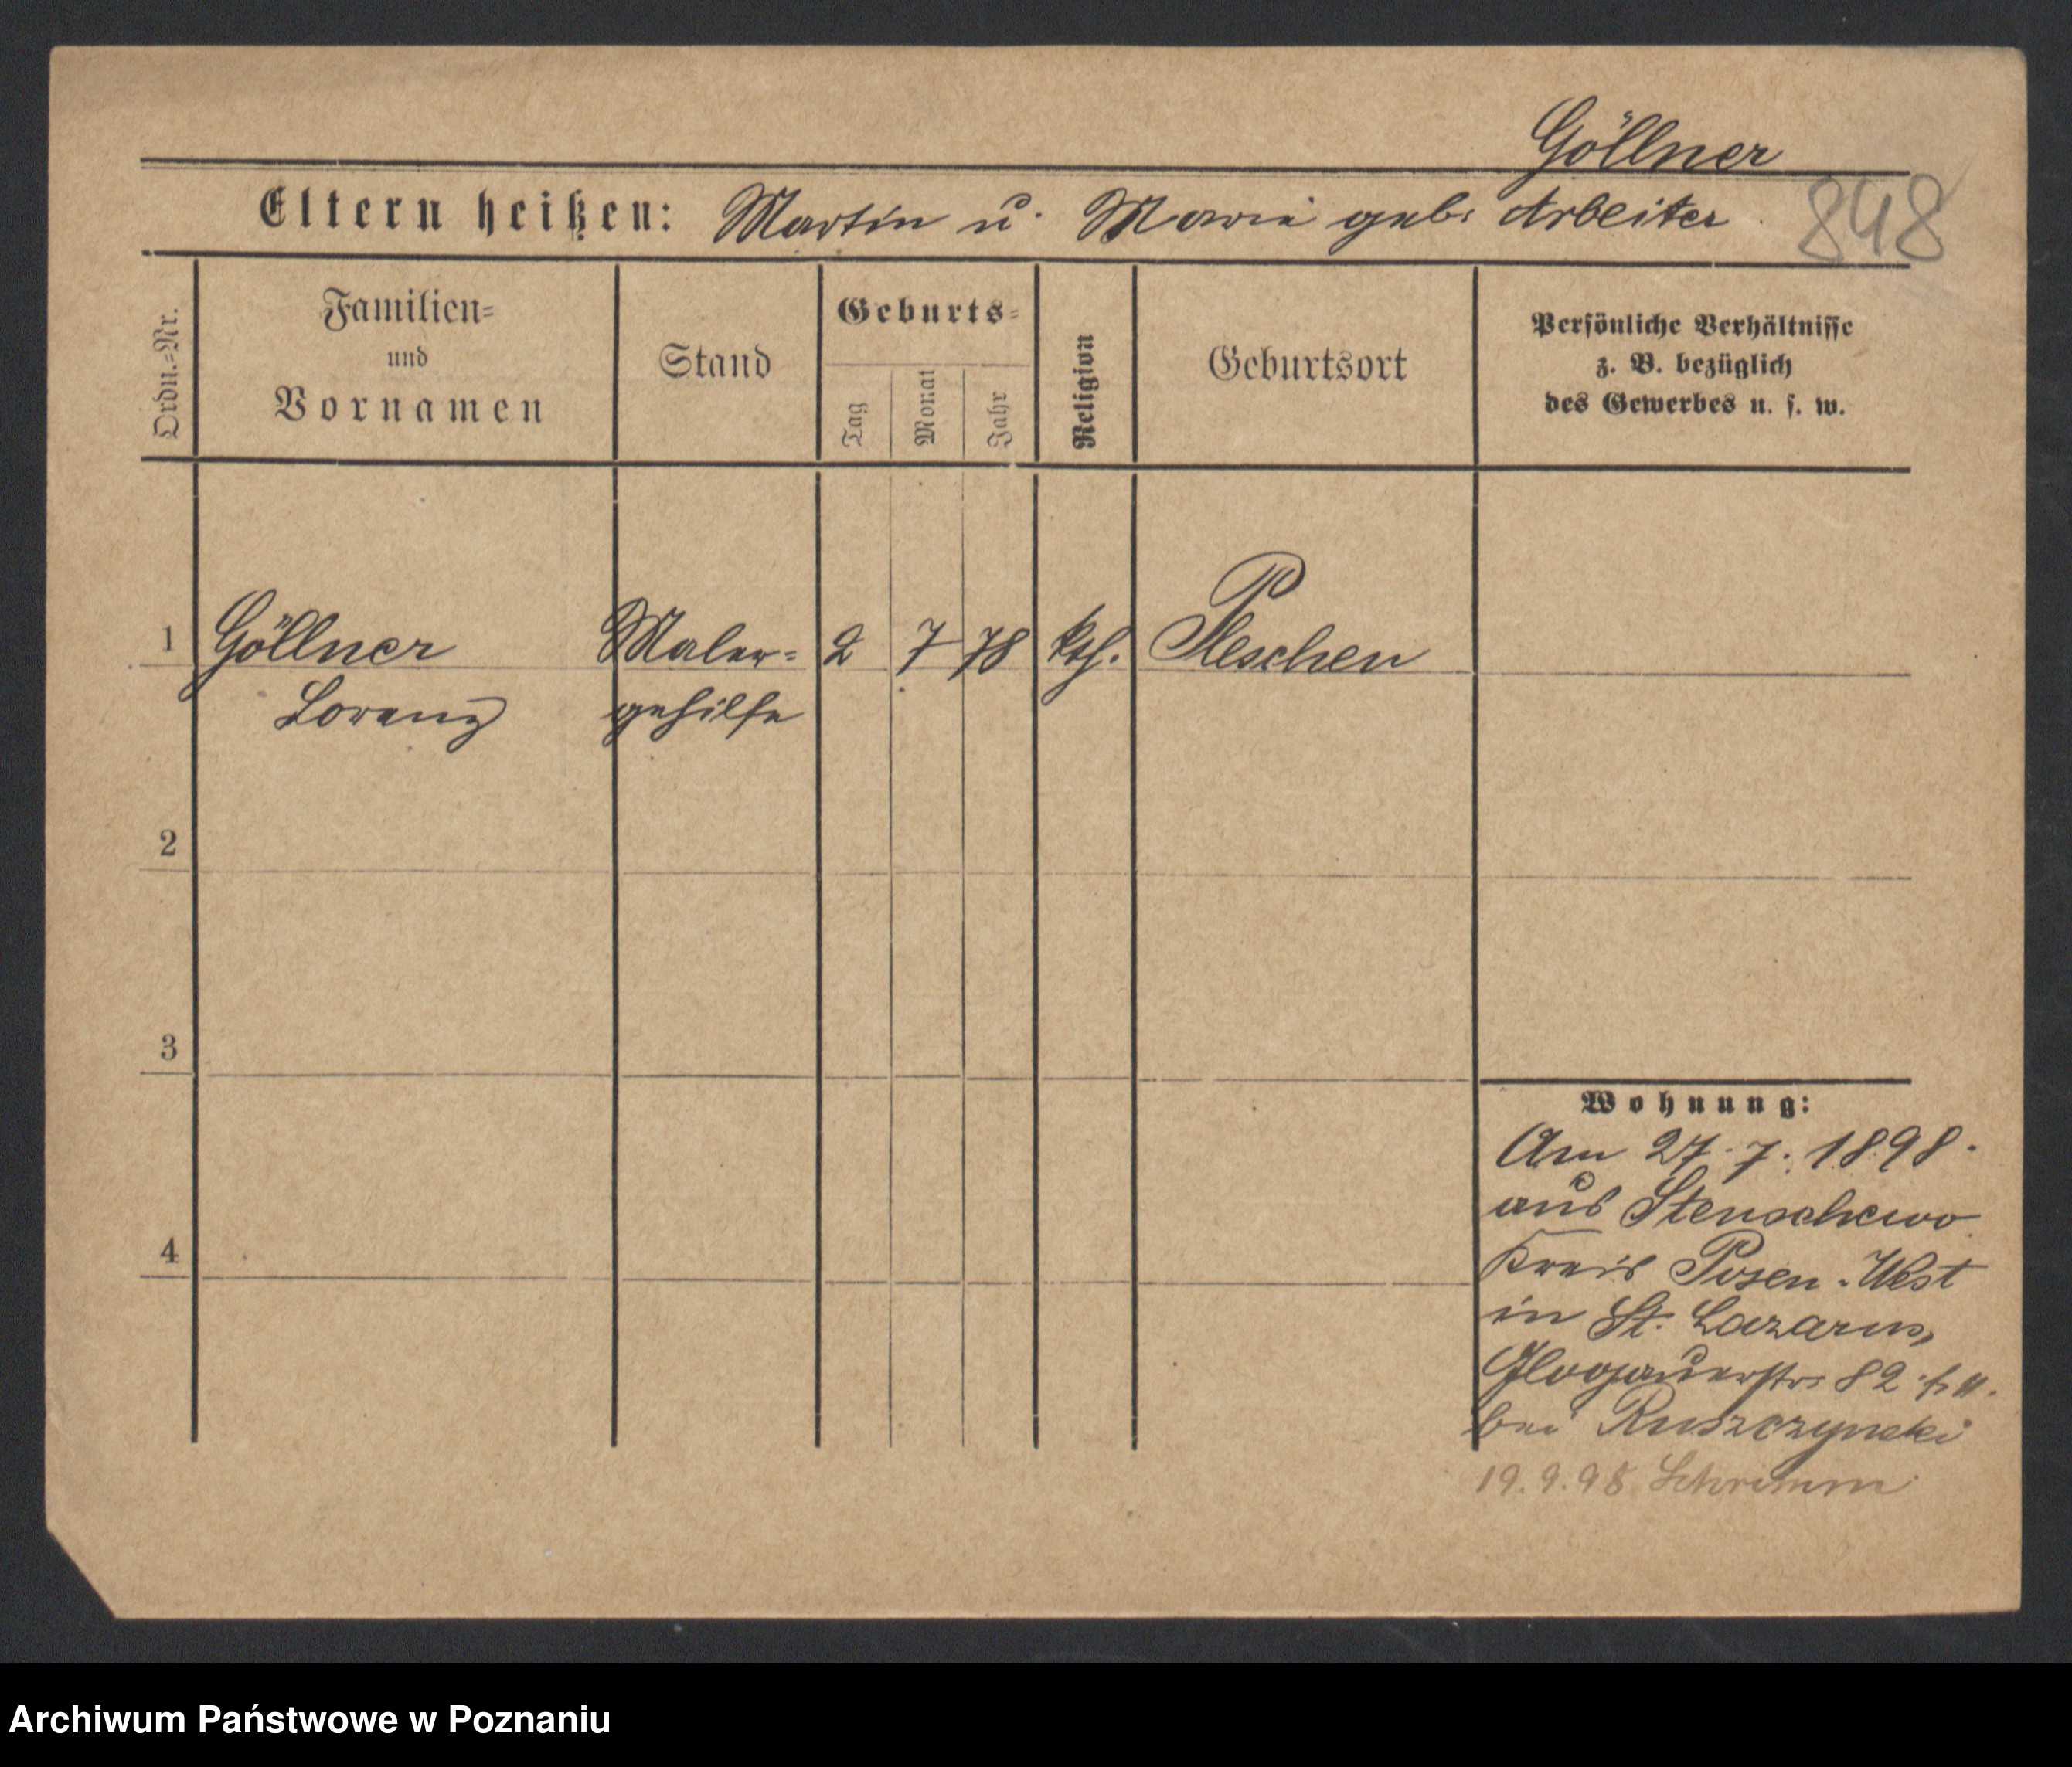 Göllner
Eltern heißen: Martin u. Marie geb. Arbeiter
848
Ordn.=Nr.
Familien=
und
Vornamen
Stand
Geburts=
Tag
Monat
Jahr
Religion
Geburtsort
Persönliche Verhältnisse
z. B. bezüglich
des Gewerbes u. s. w.
1 Göllner Maler= 2 7 78 kth. Pleschen
Lorenz gehilfe
2
3
4
Wohnung:
Am 27. 7. 1898.
aus Stenschewo
Kreis Posen-West
in St. Lazarus,
Glogauerstr. 82
bei Ruszczynski
19. 9. 98 Schrimm
Archiwum Państwowe w Poznaniu